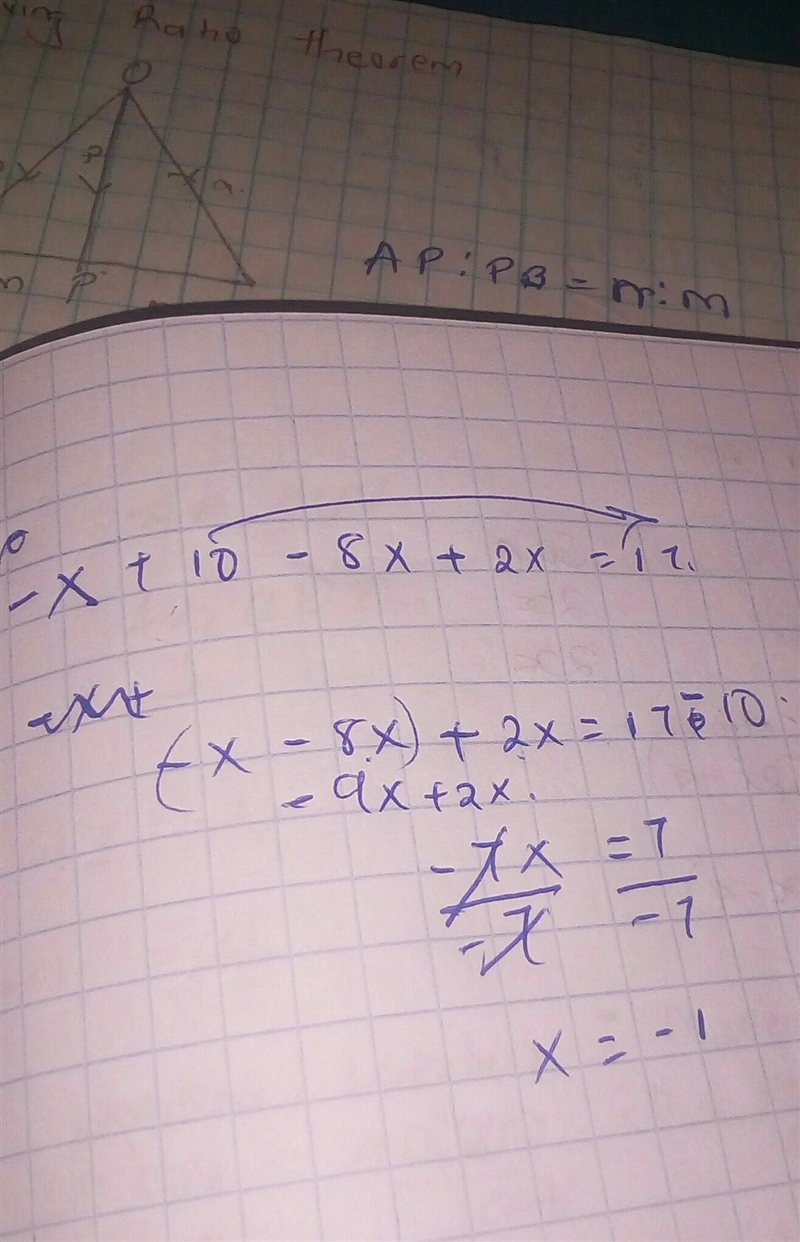 ving Raho theorem
O
P
AP:PB = n:m
P
-x + 10 - 8x + 2x = 17.
(-x - 8x) + 2x = 17 - 10
- 9x + 2x.
-7x = 7
-7 -7
x = -1